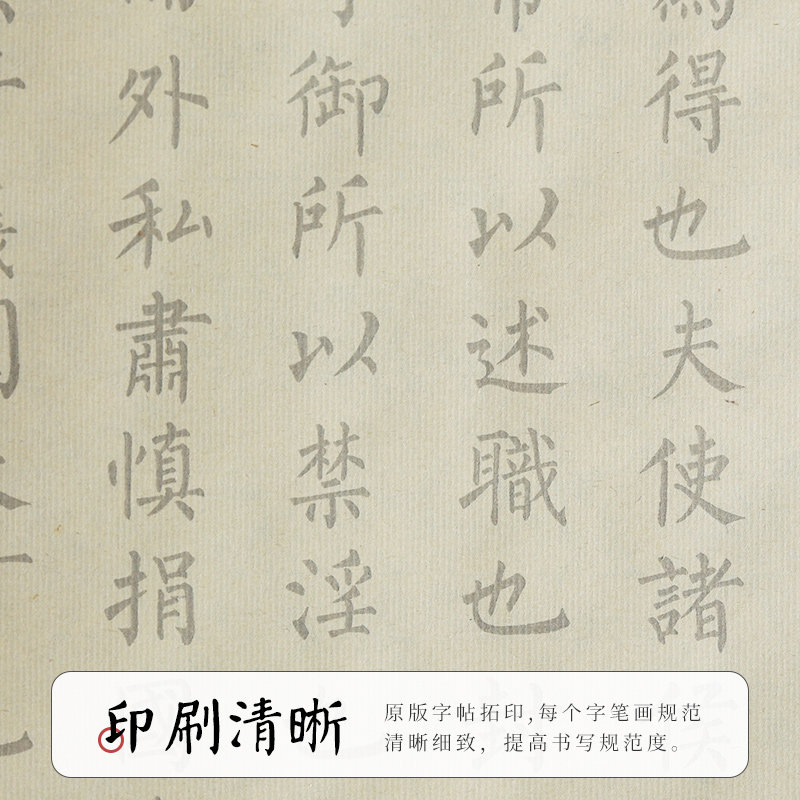 得也夫使諸
所以述職也
御所以禁淫
外私肅慎捐
印刷清晰
原版字帖拓印,每个字笔画规范
清晰细致，提高书写规范度。